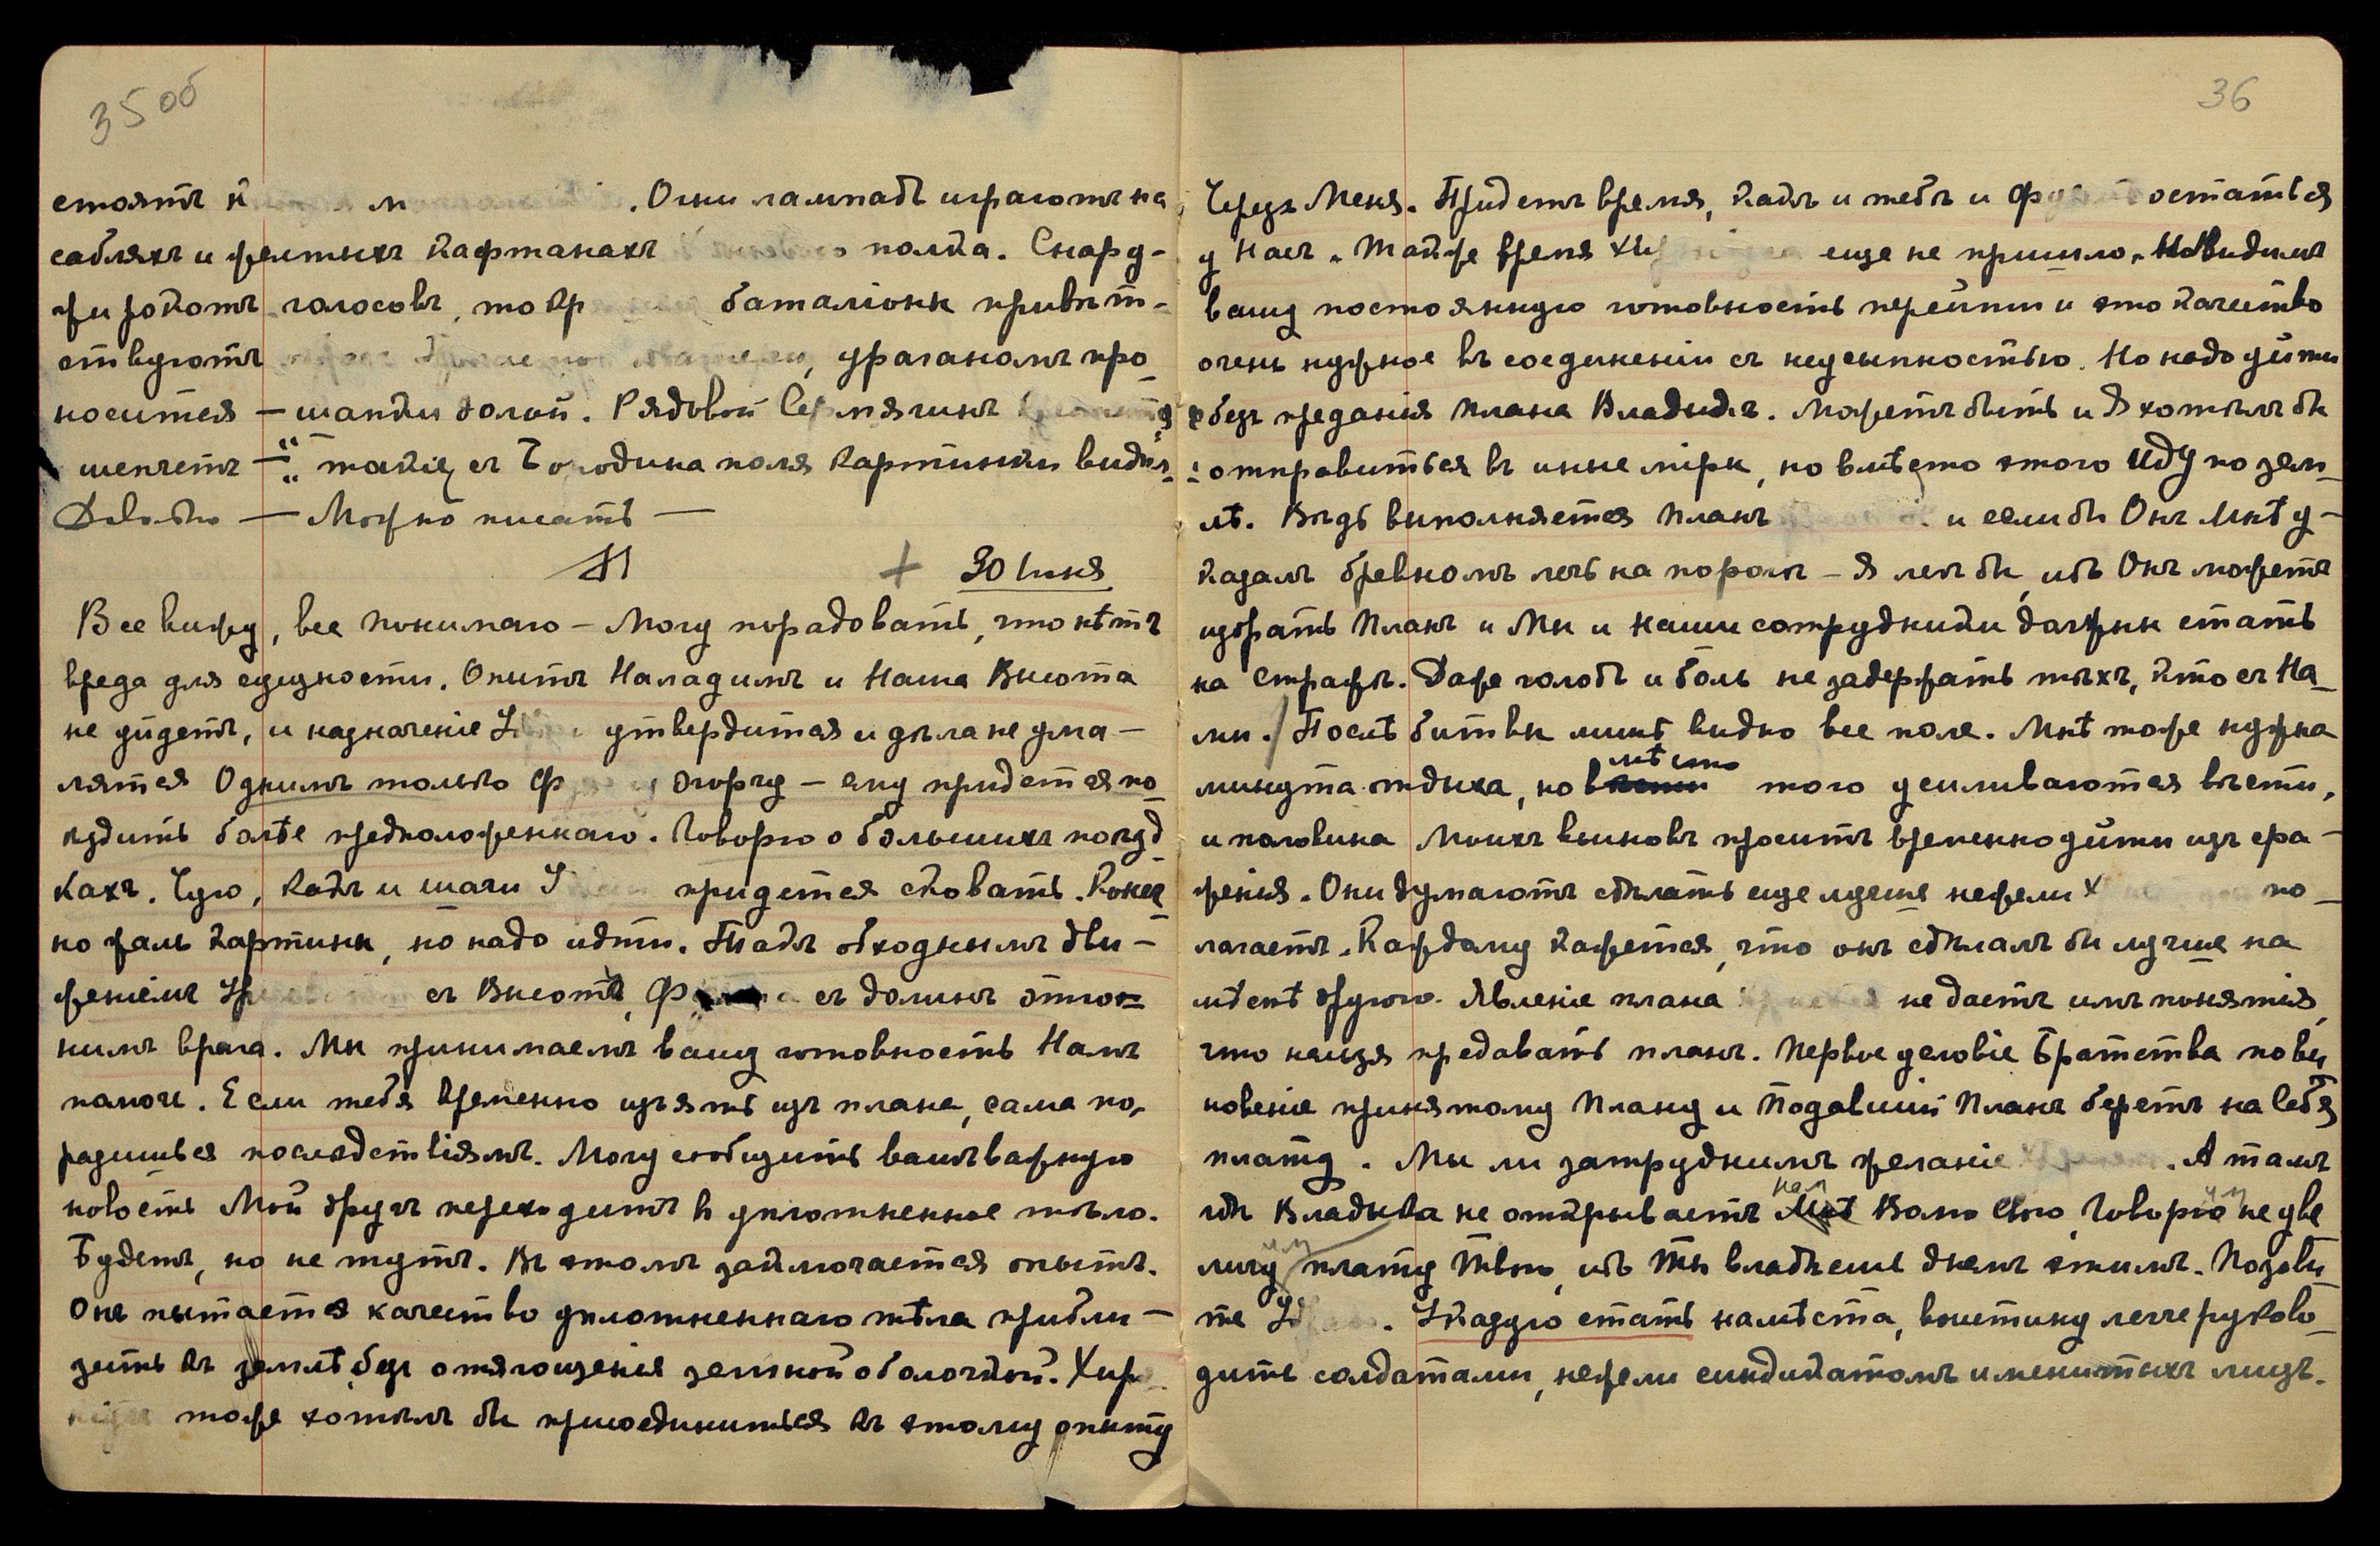 35 об
стоятъ . Огни лампадъ играютъ на
сабляхъ и желтыхъ кафтанахъ полка. Снару-
жи рокотъ голосовъ, то баталіоны привѣт-
ствуютъ , ураганомъ про
носится — шапки долой. Рядовой Сермягинъ
шепчетъ — „ такіе съ Бородина поля картинки видѣл
Довольно — Можно писать —
+ 30 Іюня
Все вижу, все понимаю — Могу порадовать, что нѣтъ
вреда для сущности. Опытъ Наладимъ и Наша Высота
не уйдетъ, и назначеніе утвердится и дѣла не ума-
лятся Однимъ только огорчу — ему придется по
ѣздить болѣе предположеннаго. Говорю о большихъ поѣзд
кахъ. Чую, какъ и шаги придется сковать. Конеч
но жаль картины, но надо идти. Такъ обходнымъ дви-
женіемъ съ Высотъ, съ долинъ отго=
нимъ врага. Мы принимаемъ вашу готовность Намъ
помочь. Если тебя временно изъять изъ плана, сама по-
разишься послѣдствіямъ. Могу сообщить вамъ важную
новость Мой другъ переходитъ в уплотненное тѣло.
Будетъ, но не тутъ. Въ этомъ заключается опытъ.
Онъ пытается качество уплотненнаго тѣла прибли-
зить къ землѣ, безъ отягощенія земной оболочкой.
тоже хотѣлъ бы присоединиться къ этому опыту
36
Черезъ Меня. Придетъ время, какъ и тебѣ и остаться
у Насъ. Также время еще не пришло. Но Видимъ
вашу постоянную готовность перейти и это качество
очень нужное въ соединеніи съ неусыпностью. Но надо уйти
безъ преданія плана Владыкѣ. Можетъ быть и Я хотѣлъ бы
отправиться въ иные міры, но вмѣсто этого Иду по зем-
лѣ. Вѣдь выполняется Планъ и если бы Онъ Мнѣ у-
казалъ бревномъ лечь на порогъ — Я легъ бы, ибо Онъ можетъ
избрать Планъ и Мы и Наши сотрудники должны стать
на Стражѣ. Даже голодъ и боль не задержатъ тѣхъ, кто съ На_
ми. / Послѣ битвы Мнѣ видно все поле. Мнѣ тоже нужна
минута отдыха, но вмѣсто того усиливаются вѣсти,
и половина Моихъ воиновъ проситъ временно уйти изъ сра-
женія. Они думаютъ сдѣлать еще лучше нежели по_
лагаетъ. Каждому кажется, что онъ сдѣлалъ бы лучше на
мѣстѣ другого. Явленіе плана не даетъ имъ понятія,
что нельзя предавать планъ. Первое условіе Братства пови
новеніе принятому Плану и Подавшій Планъ беретъ на Себя
плату. Мы ли затруднимъ желаніе . А тамъ
гдѣ Владыка не открываетъ нам Волю Свою, Говорю им не уве
личу им плату Твою, ибо Ты владѣешь днемъ этимъ. Позови
те . Указую стать на мѣста, воистину легче руково_
дить солдатами, нежели синдикатомъ именитыхъ лицъ.